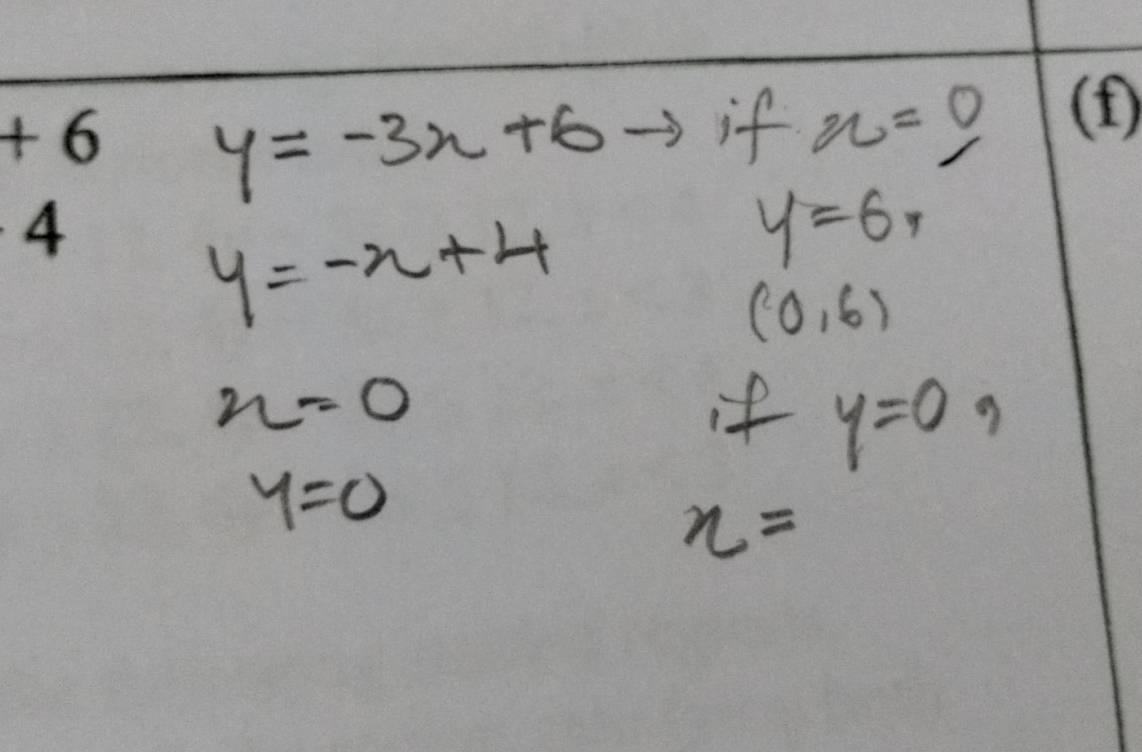 + 6
- 4
y = -3x + 6 → if x = 0
y = -x + 4
x = 0
y = 0
y = 6,
(0,6)
if y = 0,
x =
(f)